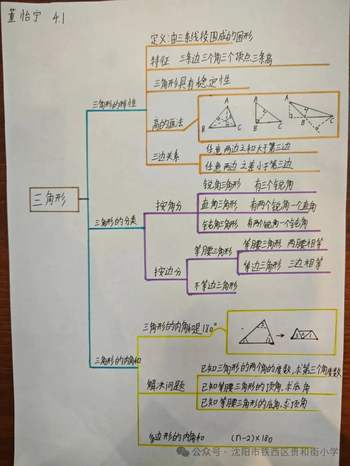 董怡宁 4.1
定义:由三条线段围成的图形
特征 三条边三个角三个顶点三条高
三角形具有稳定性
三角形的特性
高的画法
A
B
C
A
B
C
A
B
C
三边关系
任意两边之和大于第三边
任意两边之差小于第三边
三角形
三角形的分类
按角分
锐角三角形 有三个锐角
直角三角形 有两个锐角一个直角
钝角三角形 有两个锐角一个钝角
按边分
等腰三角形
等腰三角形 两腰相等
等边三角形 三边相等
不等边三角形
三角形的内角和
三角形的内角和是180°
解决问题
已知三角形的两个角的度数,求第三个角度数
已知等腰三角形的顶角,求底角
已知等腰三角形的底角,求顶角
多边形的内角和 (n-2)×180
公众号·沈阳市铁西区贵和街小学